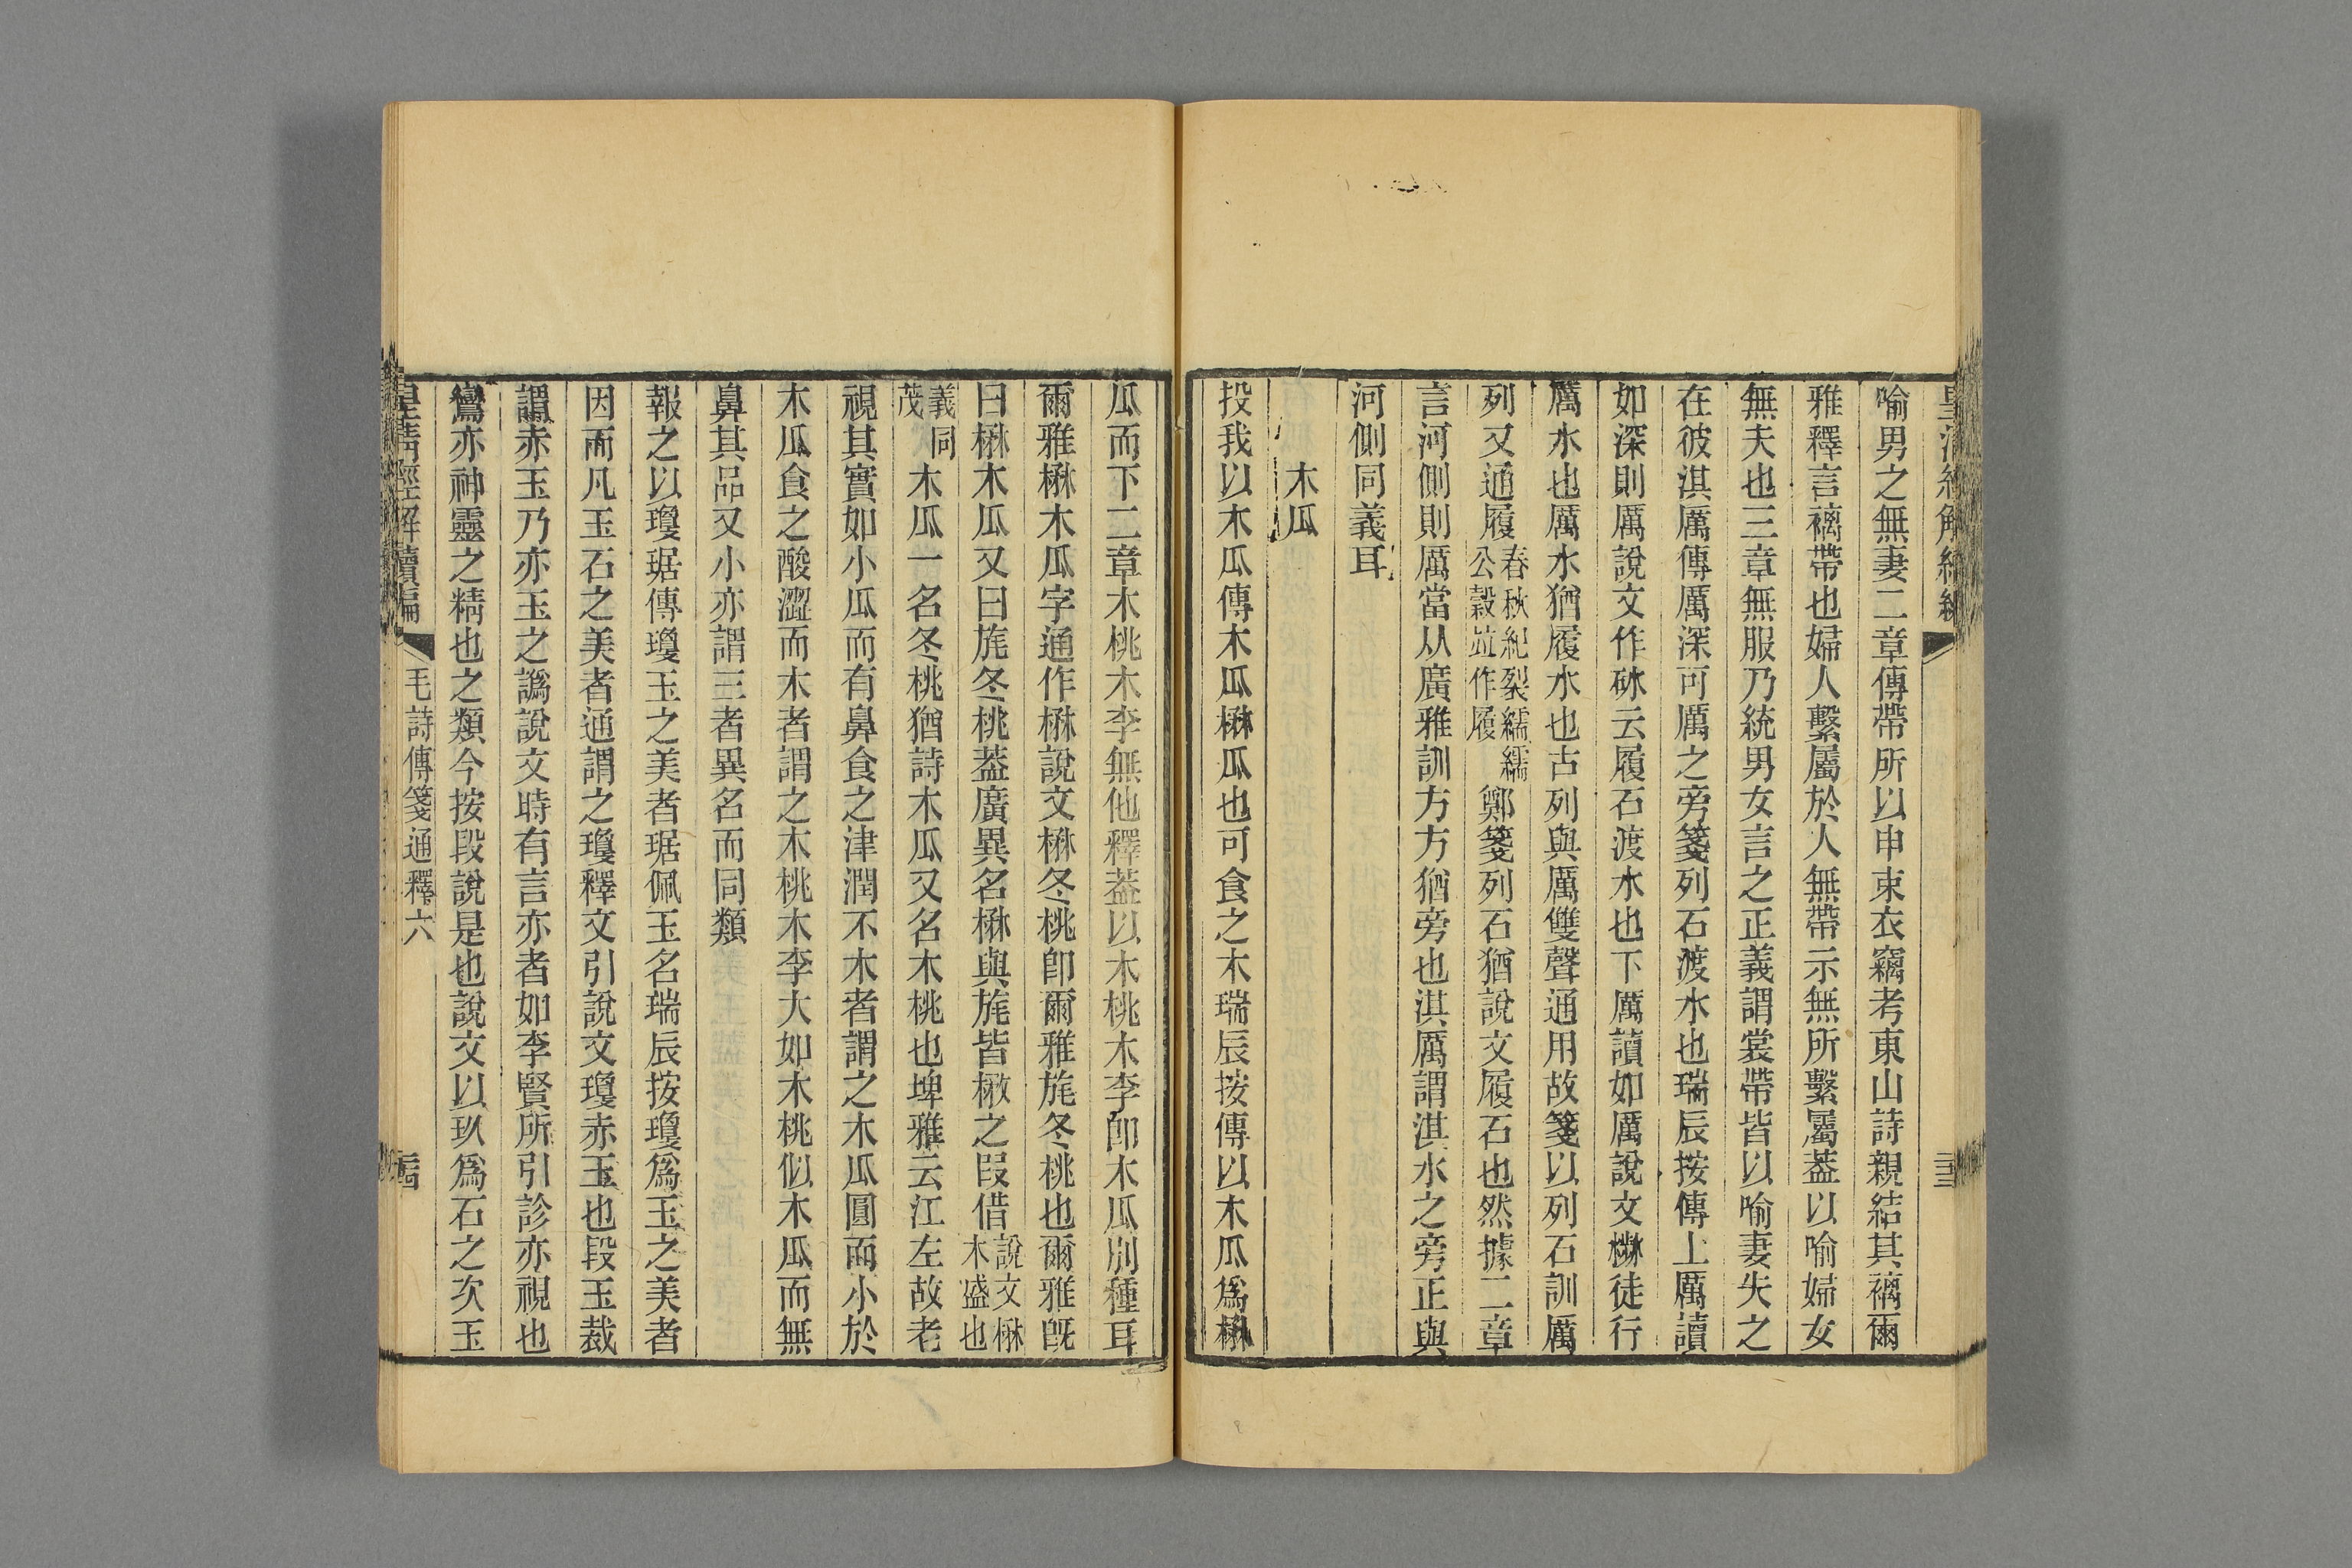 喻男之無妻二章傳帶所以申束衣竊考東山詩親結其褵爾
雅釋言褵帶也婦人繫屬於人無帶示無所繫屬葢以喻婦女
無夫也三章無服乃統男女言之正義謂裳帶皆以喻妻失之
在彼淇厲傳厲深可厲之旁箋列石渡水也瑞辰按傳上厲讀
如深則厲說文作砅云履石渡水也下厲讀如厲說文㵽徒行
厲水也厲水猶履水也古列與厲雙聲通用故箋以列石訓厲
列又通履春秋紀裂繻繻公榖竝作履鄭箋列石猶說文履石也然據二章
言河側則厲當从廣雅訓方方猶旁也淇厲謂淇水之旁正與
河側同義耳
木瓜
投我以木瓜傳木瓜楙瓜也可食之木瑞辰按傳以木瓜爲楙
瓜而下二章木桃木李無他釋葢以木桃木李卽木瓜別種耳
爾雅楙木瓜字通作楙說文楙冬桃卽爾雅旄冬桃也爾雅旣
曰楙木瓜又曰旄冬桃葢廣異名楙與旄皆楸之叚借說文楙木盛也
義同茂木瓜一名冬桃猶詩木瓜又名木桃也埤雅云江左故老
視其實如小瓜而有鼻食之津潤不木者謂之木瓜圓而小於
木瓜食之酸澀而木者謂之木桃木李大如木桃似木瓜而無
鼻其品又小亦謂三者異名而同類
報之以瓊琚傳瓊玉之美者琚佩玉名瑞辰按瓊爲玉之美者
因而凡玉石之美者通謂之瓊釋文引說文瓊赤玉也段玉裁
謂赤玉乃亦玉之譌說文時有言亦者如李賢所引診亦視也
鸞亦神靈之精也之類今按段說是也說文以玖爲石之次玉
皇淸經解續編
毛詩傳箋通釋六